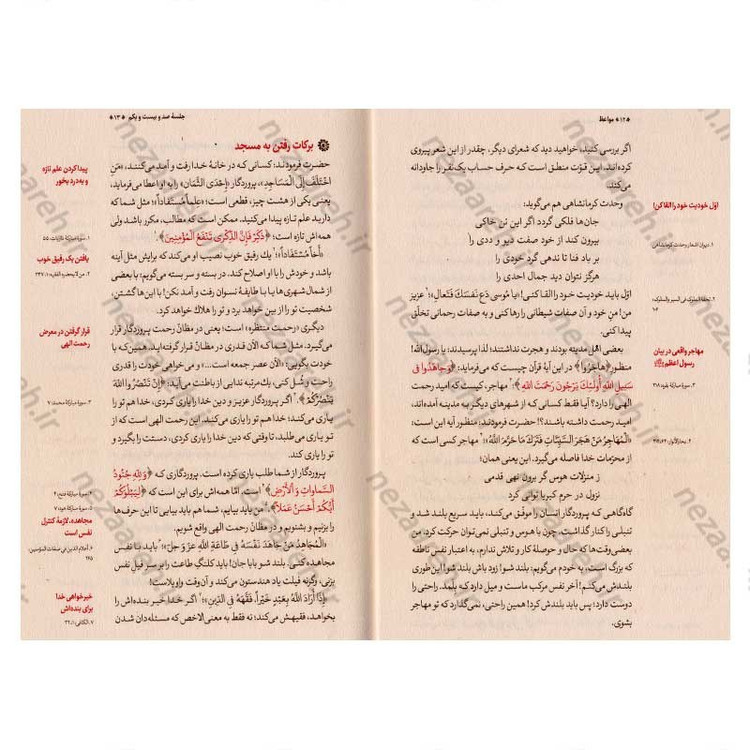 ۱۲ * مواعظ
اگر بررسی کنید، خواهید دید که شعرای دیگر، چقدر از این شعر پیروی
کرده‌اند. این قوّت منطق است که حرف حساب یک نفر را جاودانه
می‌کند.
وحدت کرمانشاهی هم می‌گوید:
جان‌ها فلکی گردد اگر این تن خاکی
بیرون کند از خود صفت دیو و ددی را
بر باد فنا تا ندهی گرد خودی را
هرگز نتوان دید جمال احدی را
اوّل باید خودیت خود را القا کنی! «یا مُوسی دَع نَفسَكَ فَتَعالِ»؛ ۲ عزیز
من! منِ خود و آن صفات شیطانی را رها کنی و به صفات رحمانی تخلّق
پیدا کنی.
بعضی اهل مدینه بودند و هجرت نداشتند؛ لذا پرسیدند: یا رسول‌الله!
منظور ﴿هاجَرُوا﴾ در این آیهٔ قرآن چیست که می‌فرماید: ﴿وَجاهَدُوا فی
سَبیلِ اللهِ أُولئِكَ یَرْجُونَ رَحْمَتَ اللهِ﴾ ۳. مهاجر، کیست که امید رحمت
الهی را دارد؟ آیا فقط کسانی که از شهرهای دیگر به مدینه آمده‌اند،
امید رحمت داشته باشند؟! حضرت فرمودند: منظور آیه این است:
«الْمُهَاجِرُ مَنْ هَجَرَ السَّیِّئَاتِ فَتَرَكَ مَا حَرَّمَ اللهُ»؛ ۴ مهاجر کسی است که
از محرّمات خدا فاصله می‌گیرد. این یعنی همان:
ز منزلات هوس گر برون نهی قدمی
نزول در حرم کبریا توانی کرد
گاه‌گاهی که پروردگار انسان را موفّق می‌کند، باید سریع بلند شد و
تنبلی را کنار گذاشت. چون با هوس و تنبلی نمی‌توان حرکت کرد. حتّی
بعضی‌وقت‌ها که حال و حوصلهٔ کار و تلاش ندارم، به اعتبار نفس ناطقه
که بزرگ است، به خودم می‌گویم: بلند شو! زود باش بلند شو! این‌طوری
بلندش می‌کنم! آخر نفس مرکب ماست و میل دارد که بلمد. راحتی را
دوست دارد؛ پس باید بلندش کرد! همین راحتی، نمی‌گذارد که تو مهاجر
بشوی.
اوّل خودیت خود را القا کن!
۱. دیوان اشعار وحدت کرمانشاهی
۲. تحفة الملوک فی السیر و السلوک،
مهاجر واقعی در بیان
رسول اعظم
۳. سورهٔ مبارکهٔ بقره؛ ۲۱۸
جلسهٔ صد و بیست و یکم * ۱۳
برکات رفتن به مسجد
حضرت فرمودند: کسانی که در خانهٔ خدا رفت و آمد می‌کنند، «مَنِ
اخْتَلَفَ إِلَی الْمَسَاجِدِ»، پروردگار «إِحْدَی الثَّمَان» را به او اعطا می‌فرماید،
یعنی یکی از هشت چیز، قطعی است؛ «عِلماً مُستَفاداً»؛ مثل شما که
دارید علم تازه پیدا می‌کنید. ممکن است که مطالب، مکرّر باشد، ولی
همه‌اش تازه است؛ ﴿ذَكِّرْ فَإِنَّ الذِّكْرَى تَنْفَعُ الْمُؤْمِنِينَ﴾ ۱.
«أَخاً مُسْتَفَاداً»؛ ۲ یک رفیق خوب نصیب او می‌کند که برایش مثل آینه
باشد و خودش را با او اصلاح کند. در بسته و سر بسته می‌گویم؛ با بعضی
از شمال‌شهری‌ها یا با طایفهٔ نسوان رفت و آمد نکن! با این‌ها گشتن،
شخصیت تو را از بین خواهد برد و تو را هلاک خواهد کرد.
دیگری «رحمت منتظره» است؛ یعنی در مظانّ رحمت پروردگار قرار
می‌گیرد. مثل شما که الآن قدری در مظانّ قرار گرفته‌اید. همین‌که با
خودت بگویی: «الآن عصر جمعه است...» و می‌خواهی خودت را قدری
راحت و شُل کنی، یک‌مرتبه ندایی از باطنت می‌آید: ﴿إِنْ تَنْصُرُوا اللهَ
یَنْصُرْكُمْ﴾ ۳. اگر خدا، پروردگار عزیز و دین خدا را یاری کردی، خدا هم تو را
یاری می‌کند؛ خدا هم تو را یاری می‌کند. این، رحمت الهی است که از
تو یاری می‌طلبد، تا وقتی که دین خدا را یاری کردی، دستت را بگیرد و
تو را یاری کند.
پروردگار از شما طلب یاری کرده است. پروردگاری که ﴿وَلِلهِ جُنُودُ
السَّماواتِ وَالْأَرْضِ﴾ ۴ است. امّا همه‌اش برای این است که ﴿لِیَبْلُوَكُمْ
أَیُّكُمْ أَحْسَنُ عَمَلاً﴾ ۵. من باید بیایم، شما هم باید بیایی تا این حرف‌ها
را بزنیم و بشنویم و در مظانّ رحمت الهی واقع شویم.
«الْمُجَاهِدُ مَنْ جَاهَدَ نَفْسَهُ فِي طَاعَةِ اللهِ عَزَّ وَ جَلَّ»؛ ۶ باید با نفس
مجاهده کنی. بلند شو بابا جان! باید کلنگِ طاعت را بر سر فیل نفس
بزنی، وگرنه فیلت یاد هندستون می‌کند و آن‌وقت واویلاست!
«إِذَا أَرَادَ اللهُ بِعَبْدٍ خَیْراً، فَقَّهَهُ فِي الدِّینِ»؛ ۷ اگر خدا خیر بنده‌اش را
بخواهد، فقیهش می‌کند؛ نه فقط به معنی الاخص که مسئله‌دان شدن
پیدا کردن علم تازه
و به‌درد بخور
۱. سورهٔ مبارکهٔ ذاریات؛ ۵۵
یافتن یک رفیق خوب
۲. من لا یحضره الفقیه؛ ۱: ۲۳۷
قرار گرفتن در معرض
رحمت الهی
۳. سورهٔ مبارکهٔ محمد؛ ۷
۴. سورهٔ مبارکهٔ فتح؛ ۴
۵. سورهٔ مبارکهٔ هود؛ ۷
مجاهده، لازمهٔ کنترل
نفس است
۶. أعلام الدین فی صفات المؤمنین؛
خیرخواهی خدا
برای بنده‌اش
۷. الکافی؛ ۱: ۳۲
nezaareh.ir